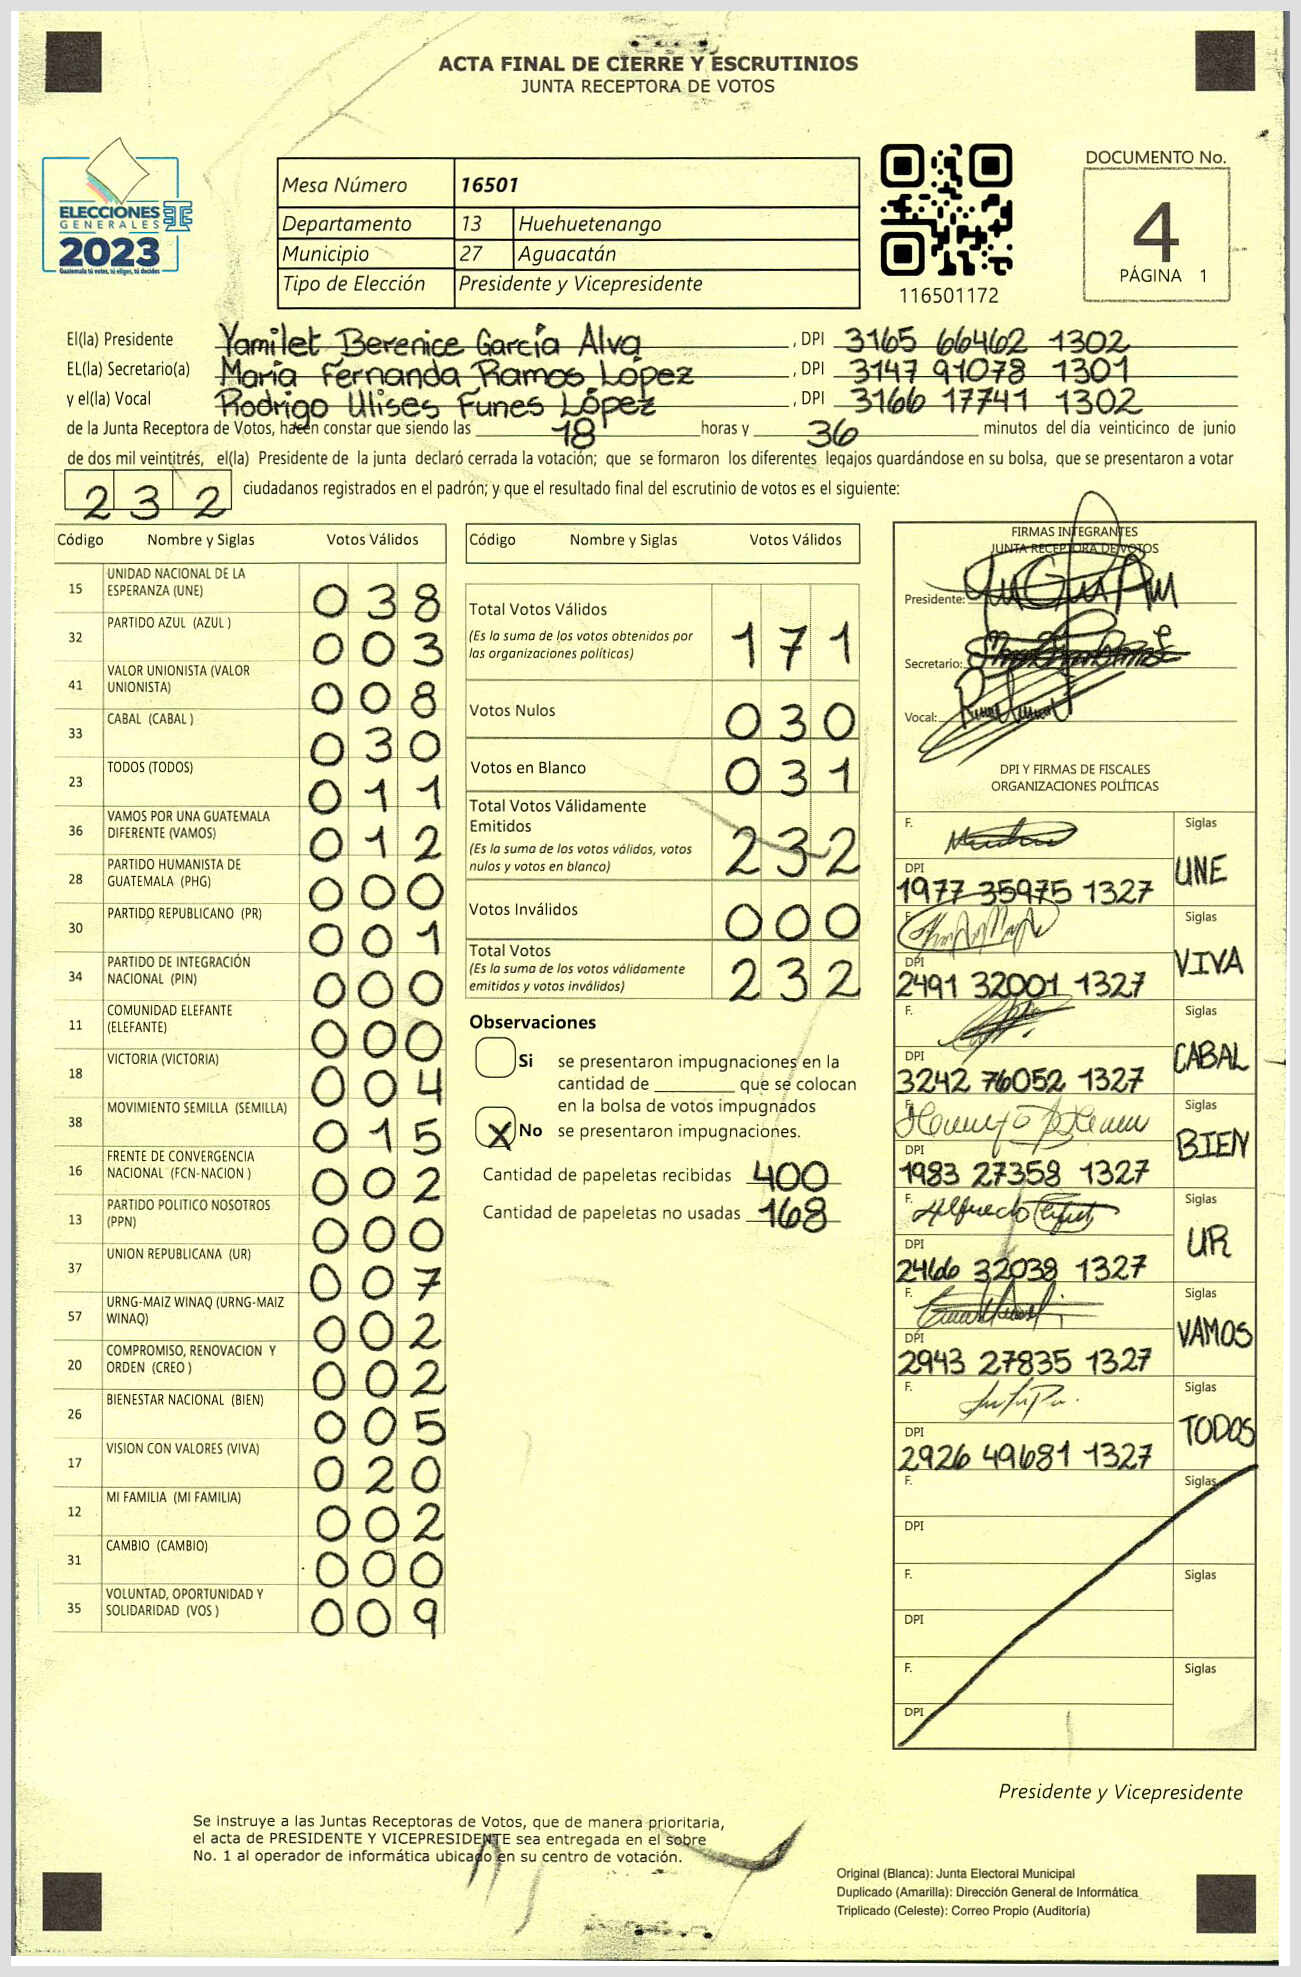 ACTA FINAL DE CIERRE Y ESCRUTINIOS
JUNTA RECEPTORA DE VOTOS
ELECCIONES
GENERALES
2023
Guatemala tú votes, tú eliges, tú decides
Mesa Número 16501
Departamento 13 Huehuetenango
Municipio 27 Aguacatán
Tipo de Elección Presidente y Vicepresidente
116501172
DOCUMENTO No.
4
PÁGINA 1
El(la) Presidente Yamilet Berenice García Alva, DPI 3165 66462 1302
EL(la) Secretario(a) María Fernanda Ramos López, DPI 3147 91078 1301
y el(la) Vocal Rodrigo Ulises Funes López, DPI 3166 17741 1302
de la Junta Receptora de Votos, hacen constar que siendo las 18 horas y 36 minutos del día veinticinco de junio
de dos mil veintitrés, el(la) Presidente de la junta declaró cerrada la votación; que se formaron los diferentes legajos guardándose en su bolsa, que se presentaron a votar
232 ciudadanos registrados en el padrón; y que el resultado final del escrutinio de votos es el siguiente:
Código Nombre y Siglas Votos Válidos
15 UNIDAD NACIONAL DE LA
ESPERANZA (UNE) 038
32 PARTIDO AZUL (AZUL ) 003
41 VALOR UNIONISTA (VALOR
UNIONISTA) 008
33 CABAL (CABAL ) 030
23 TODOS (TODOS) 011
36 VAMOS POR UNA GUATEMALA
DIFERENTE (VAMOS) 012
28 PARTIDO HUMANISTA DE
GUATEMALA (PHG) 000
30 PARTIDO REPUBLICANO (PR) 001
34 PARTIDO DE INTEGRACIÓN
NACIONAL (PIN) 000
11 COMUNIDAD ELEFANTE
(ELEFANTE) 000
18 VICTORIA (VICTORIA) 004
38 MOVIMIENTO SEMILLA (SEMILLA) 015
16 FRENTE DE CONVERGENCIA
NACIONAL (FCN-NACION ) 002
13 PARTIDO POLITICO NOSOTROS
(PPN) 000
37 UNION REPUBLICANA (UR) 007
57 URNG-MAIZ WINAQ (URNG-MAIZ
WINAQ) 002
20 COMPROMISO, RENOVACION Y
ORDEN (CREO ) 002
26 BIENESTAR NACIONAL (BIEN) 005
17 VISION CON VALORES (VIVA) 020
12 MI FAMILIA (MI FAMILIA) 002
31 CAMBIO (CAMBIO) 000
35 VOLUNTAD, OPORTUNIDAD Y
SOLIDARIDAD (VOS ) 009
Código Nombre y Siglas Votos Válidos
Total Votos Válidos 171
(Es la suma de los votos obtenidos por
las organizaciones políticas)
Votos Nulos 030
Votos en Blanco 031
Total Votos Válidamente
Emitidos 232
(Es la suma de los votos válidos, votos
nulos y votos en blanco)
Votos Inválidos 000
Total Votos 232
(Es la suma de los votos válidamente
emitidos y votos inválidos)
Observaciones
Si se presentaron impugnaciones en la
cantidad de ________ que se colocan
en la bolsa de votos impugnados
X No se presentaron impugnaciones.
Cantidad de papeletas recibidas 400
Cantidad de papeletas no usadas 168
FIRMAS INTEGRANTES
JUNTA RECEPTORA DE VOTOS
Presidente:
Secretario:
Vocal:
DPI Y FIRMAS DE FISCALES
ORGANIZACIONES POLÍTICAS
F. Siglas UNE
DPI 1977 35975 1327
F. Siglas VIVA
DPI 2491 32001 1327
F. Siglas CABAL
DPI 3242 76052 1327
F. Siglas BIEN
DPI 1983 27358 1327
F. Alfredo Siglas UR
DPI 2466 32038 1327
F. Siglas VAMOS
DPI 2943 27835 1327
F. Siglas TODOS
DPI 2926 49681 1327
F. Siglas
DPI
F. Siglas
DPI
F. Siglas
DPI
Presidente y Vicepresidente
Se instruye a las Juntas Receptoras de Votos, que de manera prioritaria,
el acta de PRESIDENTE Y VICEPRESIDENTE sea entregada en el sobre
No. 1 al operador de informática ubicado en su centro de votación.
Original (Blanca): Junta Electoral Municipal
Duplicado (Amarilla): Dirección General de Informática
Triplicado (Celeste): Correo Propio (Auditoría)